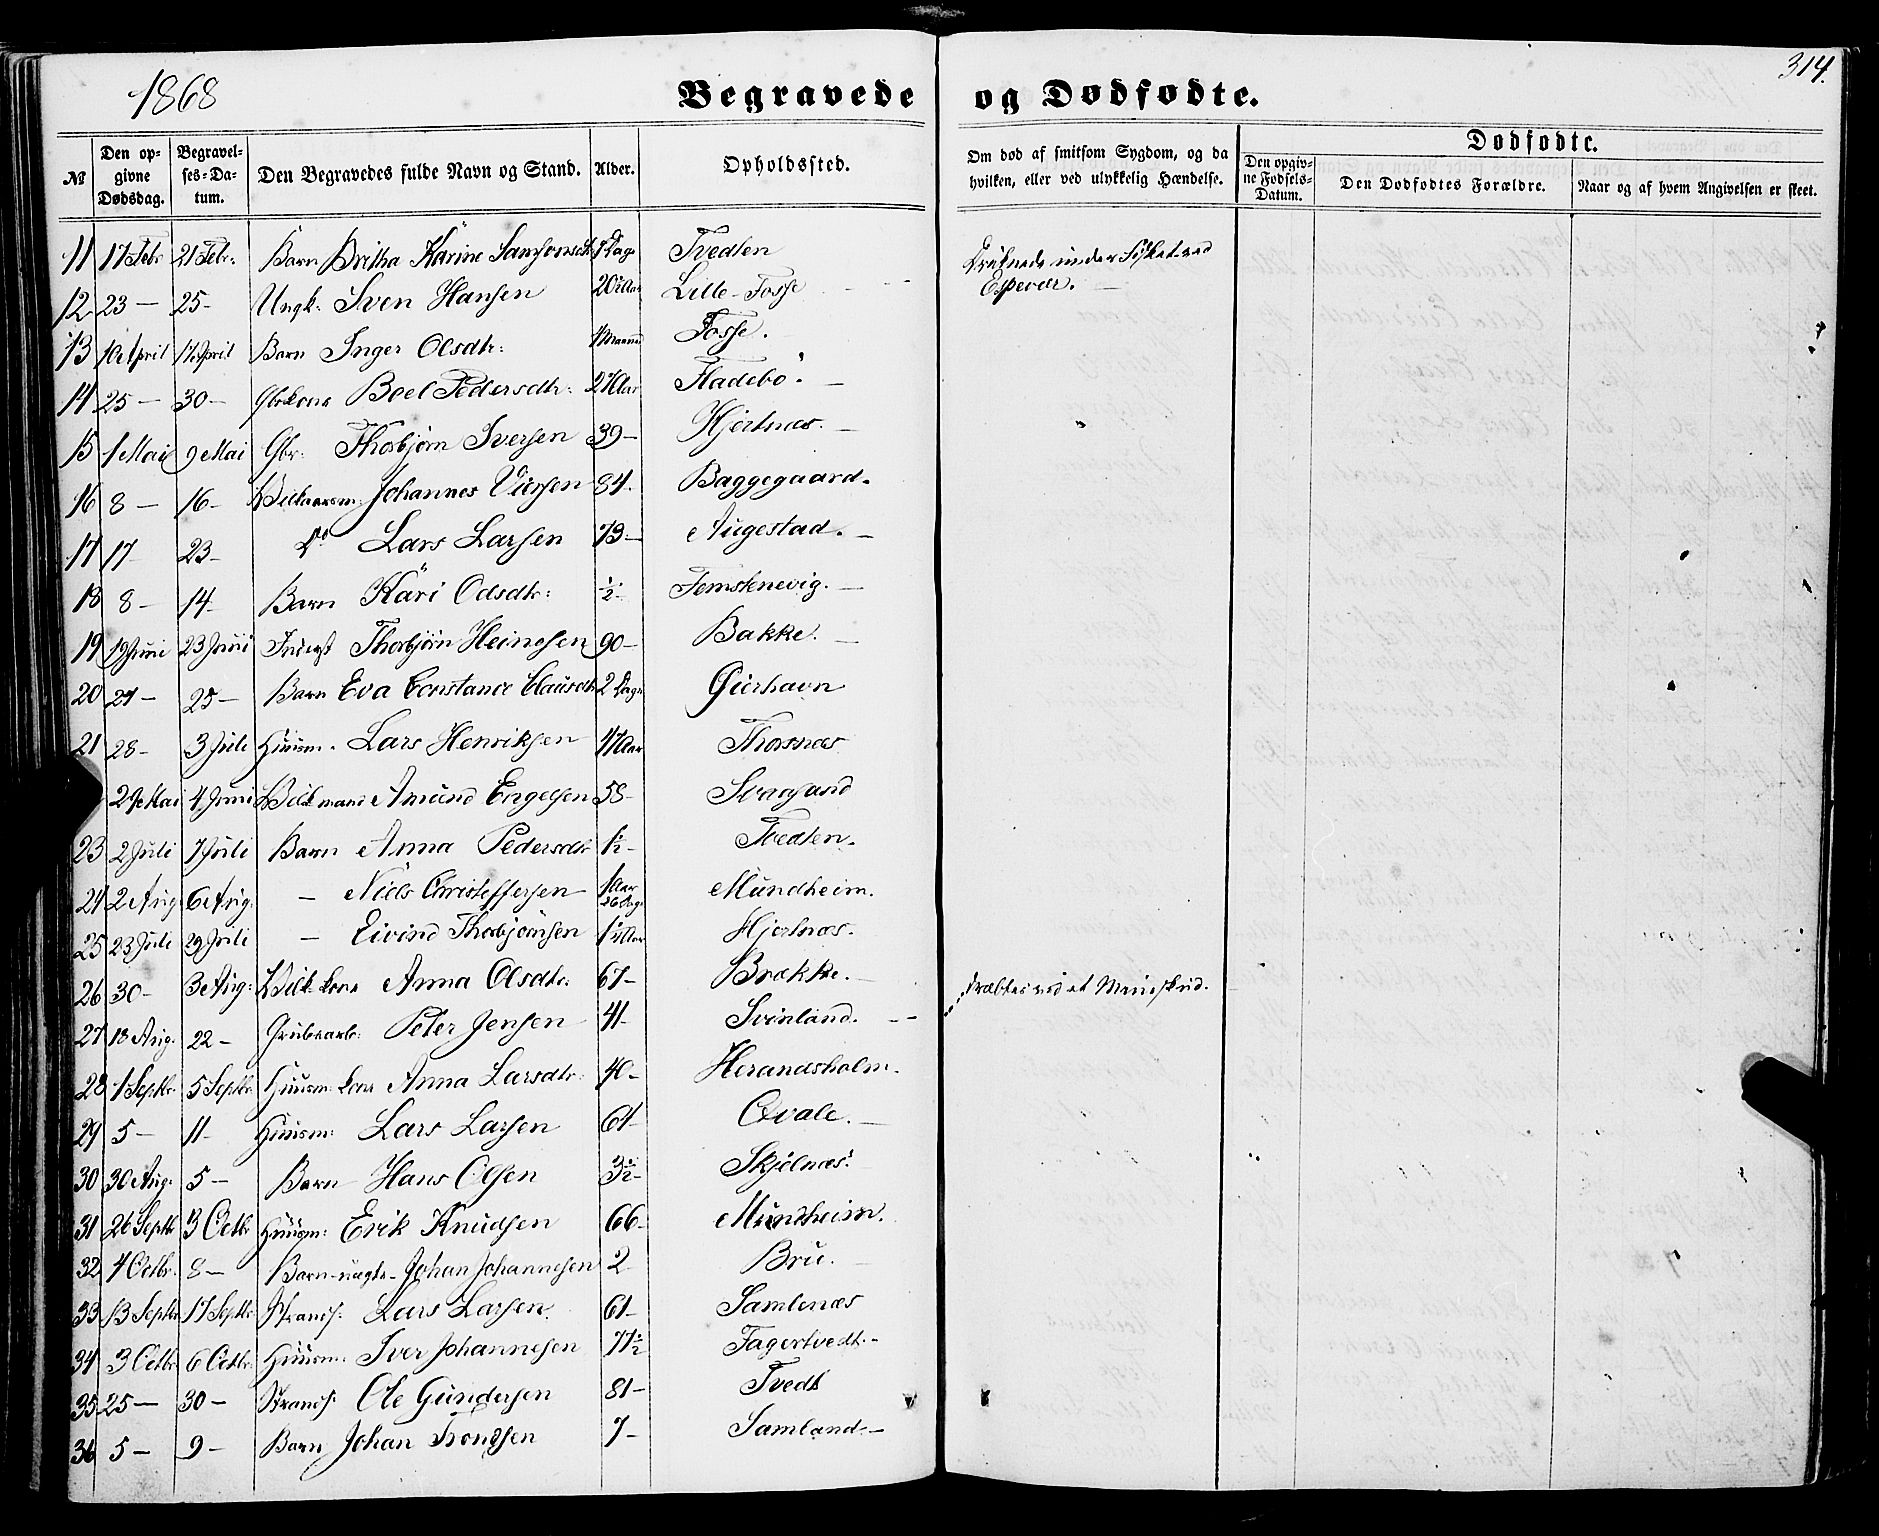 1868
Begravede og Dødfødte.
314.
№ Den opgivne Dødsdag. Begravelses-Datum. Den Begravedes fulde Navn og Stand. Alder. Opholdssted. Om død af smitsom Sygdom, og da hvilken, eller ved ulykkelig Hændelse. Dødfødte. Den opgivne Fødsels-Datum. Den Dødfødtes Forældre. Naar og af hvem Angivelsen er skeet.
11 17 Febr 21 Febr: Barn Britha Karine Samsonsdtr Dage Tvedten
12 23 — 25 - Ungk: Sven Hansen 20 Aar Lille-Fosse Druknede under Fisket ved Espevær.
13 10 April 17 April Barn Inger Olsdtr: 1 Maaned Fosse.
14 25 — 30 — Gbrkone Boel Pedersdtr: 27 Aar Fladebø. —
15 1 Mai 9 Mai Gbr: Thorbjørn Iversen 39 — Hjertnæs. —
16 8 — 16 - Johannes 84. Baggegaard.
17 17 23 - Do Lars Larsen 73 — Augestad. —
18 8 — 14 - Barn Kari Odsdtr: ½ - Femstenevig. —
19 19 Juni 23 Juni Inderst Thorbjørn Heinesen 90 — Bakke. —
20 21 — 25 — Barn Eva Constance Clausdtr 2 Dage Gierhavn
21 28 - 3 Juli Huusm. Lars Henriksen 47 Aar Thorsnæs
29 Mai 4 Juni Amund Engelsen 58 -
23 2 Juli 7 Juli Barn Anna Pedersdtr 1½ - Tvedten.
24 2 Aug 6 Aug. — Niels Christoffersen 1 Aar 26 Dage Mundheim.
25 23 Juli 29 Juli — Eivind Thorbjørnsen Aar Hjertnæs.
26 30 - 3 Aug: kone Anna Olsdtr: 67 - Brække. —
27 18 Aug. 22 — Grubearb: Peter Jensen 41 - Svinland. - - ved et Mineskud.
28 1 Septbr. 5 Septbr. Huusm: kone Anna Larsdtr: 40 - Herandsholm.
29 5 — 11 - Huusm: Lars Larsen 64 - Qvale. —
30 30 Aug. 5 — Barn Hans Olsen 3½ - Skjelnæs.
31 26 Septbr 3 Octbr Huusm: Erik Knudsen 66 - Mundheim.
32 4 Octbr. 8 — Barn uægte - Johan Johannesen 2 Bru.
33 13 Septbr 17 Septbr. Strands: Lars Larsen. 61 - Samlenæs
34 3 Octbr 6 Octbr Huusm: Iver Johannesen 77½ Fagertvedt. -
35 25 — 30 — Strands: Ole Gundersen 81 - Tvedt
36 5 — 9 - Barn Johan Trondsen 7 - Samland. —